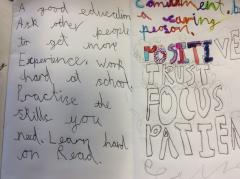 A good education
Ask other people
to get more
Experience, work
hard at school.
Practise the
skills you
need. Learn hard
on Read.
a caring
person.
POSITIVE
TRUST
FOCUS
PATIEN